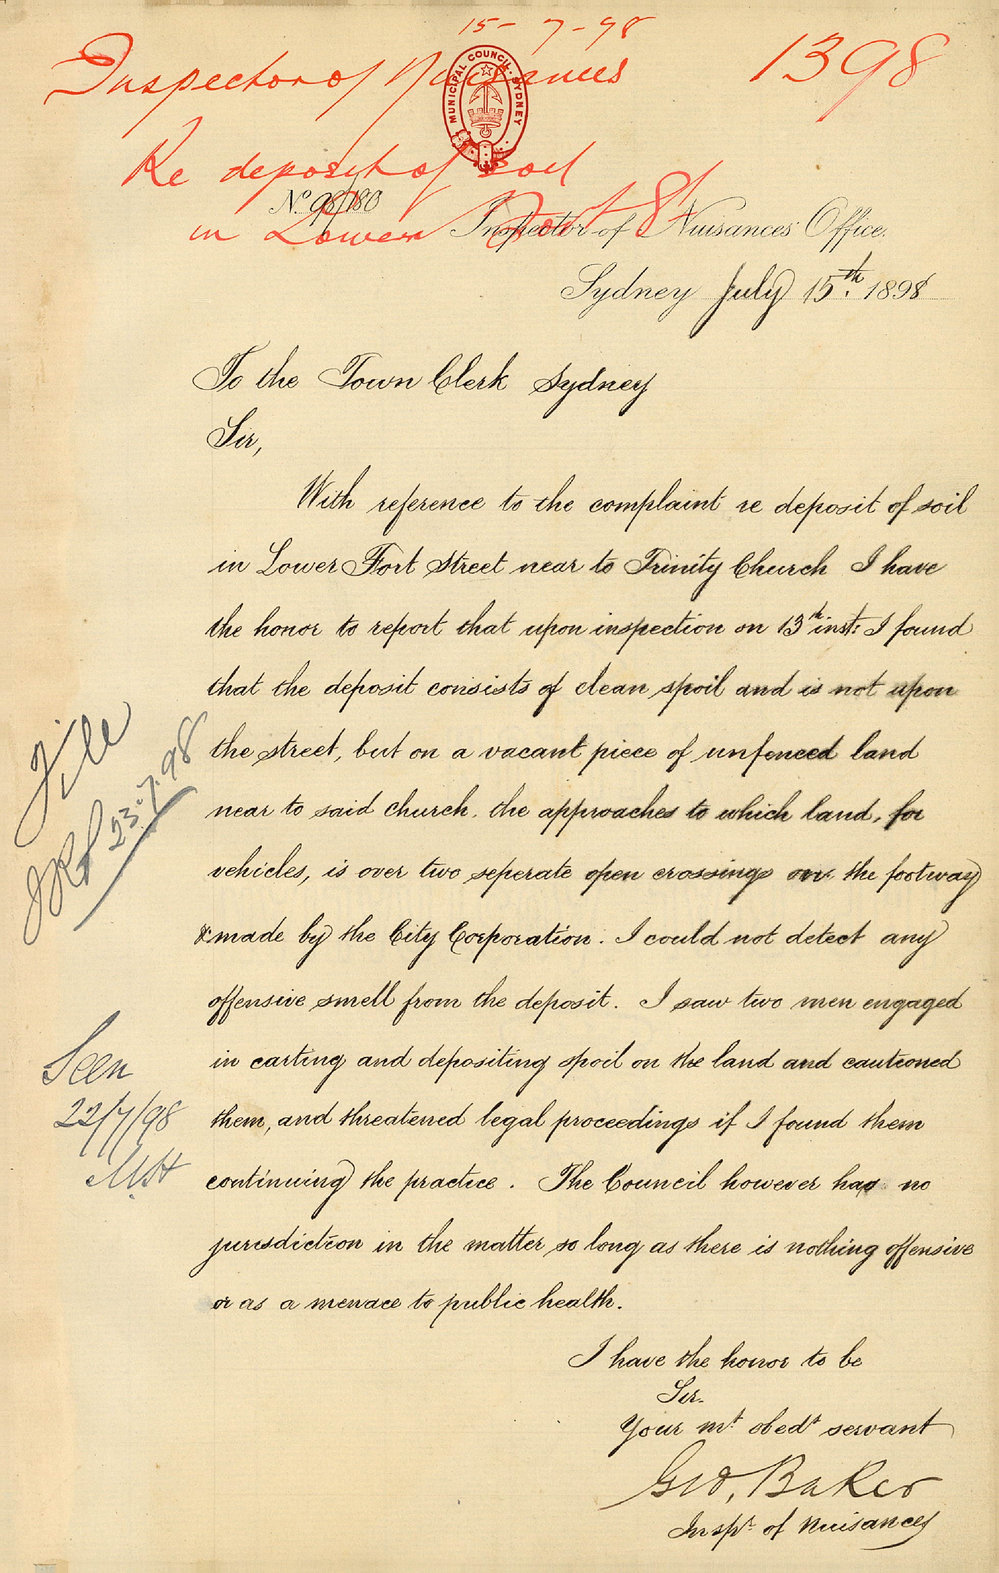 15-7-98
Inspector of Nuisances 1398
MUNICIPAL COUNCIL. SYDNEY
Re deposit of Soil
No. 98/180
in Lower Fort St
Inspector of Nuisances' Office.
Sydney July 15th. 1898
To the Town Clerk Sydney
Sir,
With reference to the complaint re deposit of soil
in Lower Fort Street near to Trinity Church I have
the honor to report that upon inspection on 13th inst: I found
that the deposit consists of clean spoil and is not upon
the street, but on a vacant piece of unfenced land
near to said church, the approaches to which land, for
vehicles, is over two seperate open crossings on the footway
& made by the City Corporation. I could not detect any
offensive smell from the deposit. I saw two men engaged
in carting and depositing spoil on the land and cautioned
them, and threatened legal proceedings if I found them
continuing the practice. The Council however has no
jurisdiction in the matter so long as there is nothing offensive
or as a menace to public health.
I have the honor to be
Sir.
Your mt obedt servant
Geo. Baker
Inspr. of Nuisances
File
23.7.98
Seen
22/7/98